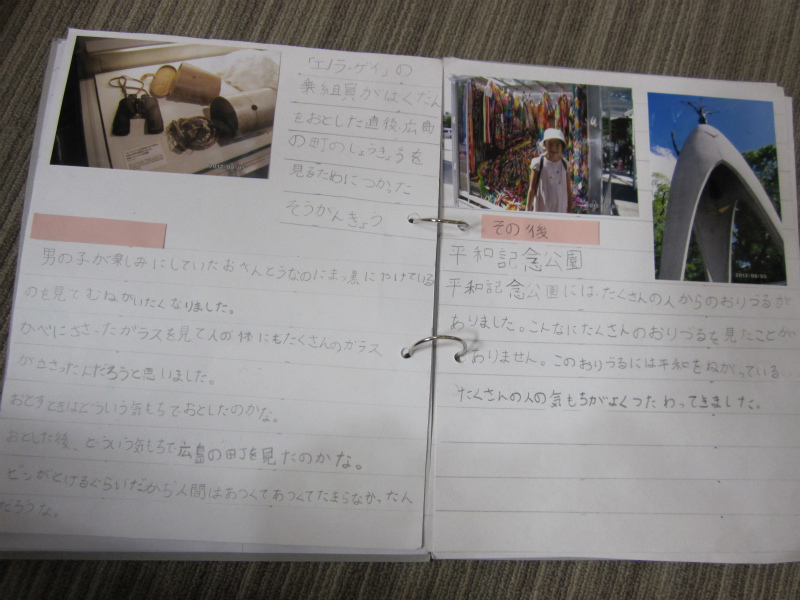 「エノラ・ゲイ」の
乗組員がばくだん
をおとした直後、広島
の町のじょうきょうを
見るためにつかった
そうがんきょう
男の子が楽しみにしていたおべんとうなのにまっ黒にやけている
のを見てむねがいたくなりました。
かべにささったガラスを見て人の体にもたくさんのガラス
がささったんだろうと思いました。
おとすときはどういう気もちでおとしたのかな。
おとした後、どういう気もちで広島の町を見たのかな。
ビンがとけるぐらいだから人間はあつくてあつくてたまらなかったん
だろうな。
その後
平和記念公園
平和記念公園には、たくさんの人からのおりづるが
ありました。こんなにたくさんのおりづるを見たことが
ありません。このおりづるには平和をねがっている
たくさんの人の気もちがよくつたわってきました。